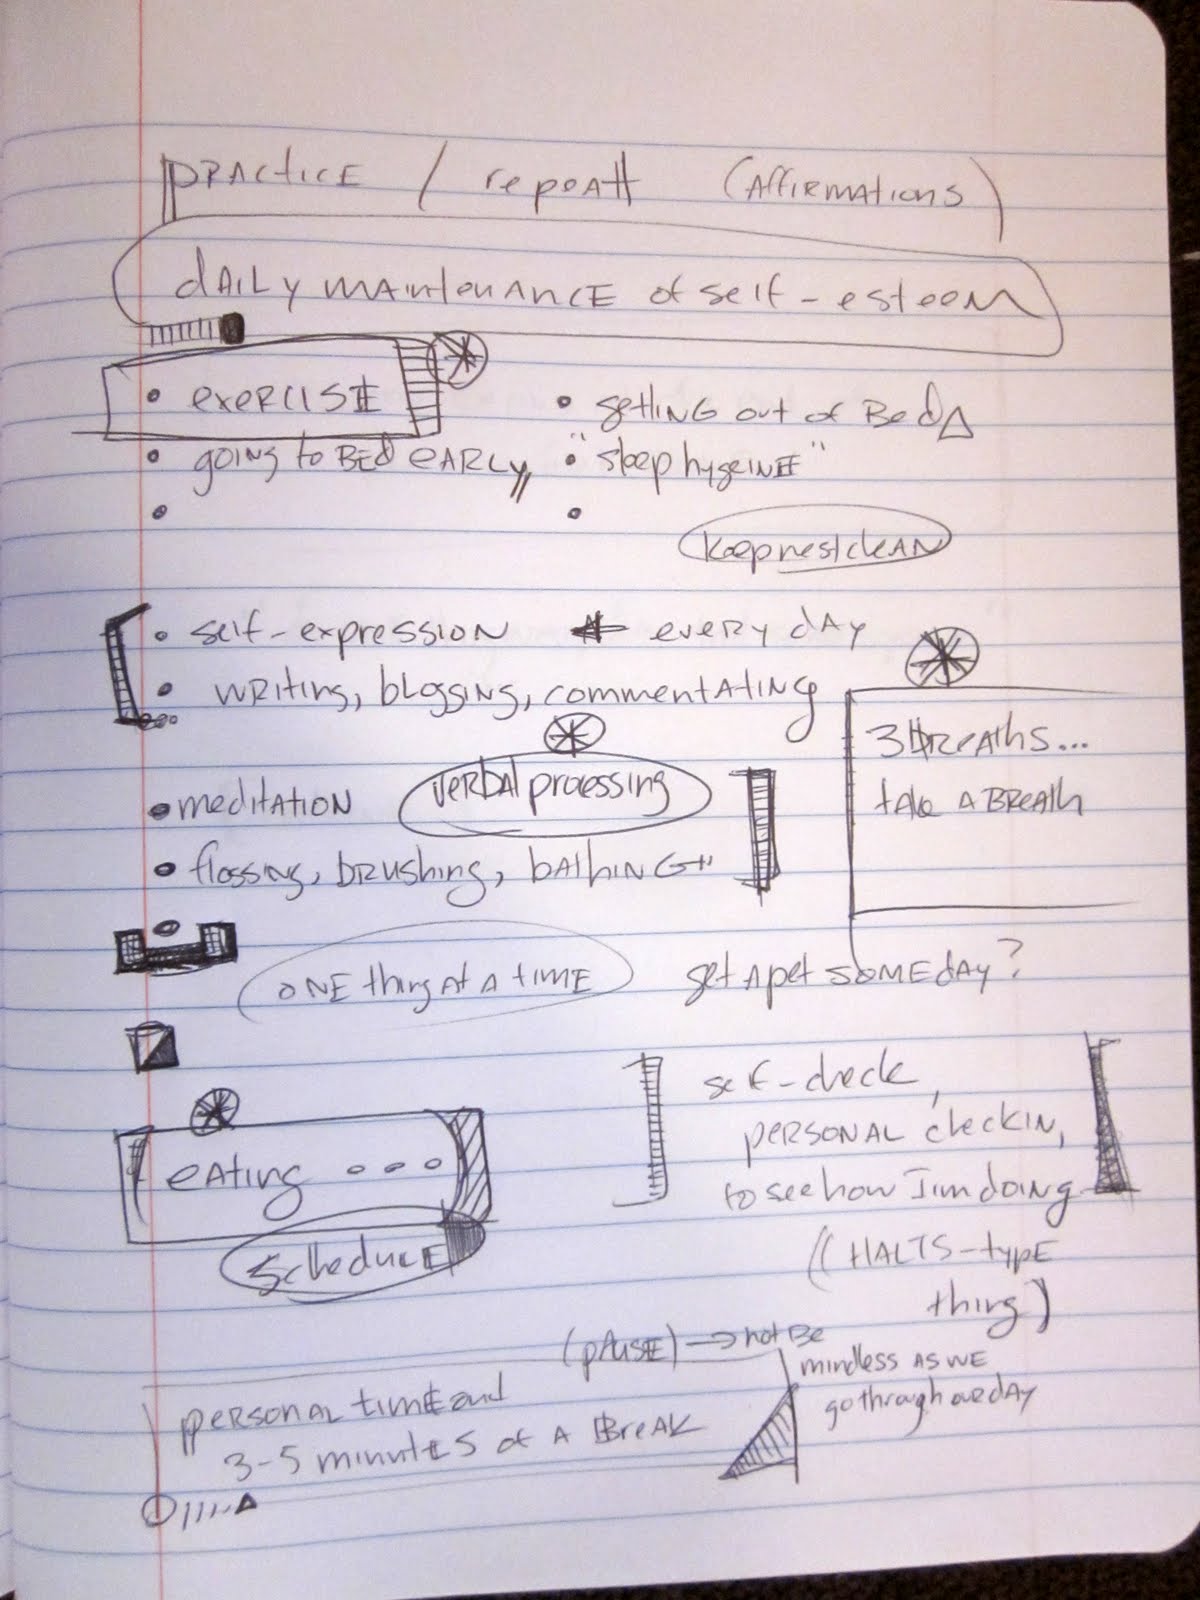 PRACTICE / repeat (Affirmations)
dAILy MAINtenANCE of self-esteem
• exERCISE
• getting out of Bed
• going to BED EARLy,
• "sleep hygeine"
keep nest cleAN
• self-expression ← every dAy
• WRiting, blogging, commentAting
3 BReAths...
take A BReAth
• meditAtioN
verbal processing
• flossing, brushing, bAthiNG
ONE thing At A time
get A pet SOMEdAY?
self-check,
peRSONAL checkIN,
to see how I'm doing
((HALTS-type
thing)
eAting ...
schedule
(pAuse) → not Be
mindless AS WE
go through our dAy
peRSONAL time and
3-5 minutes of A BreAk